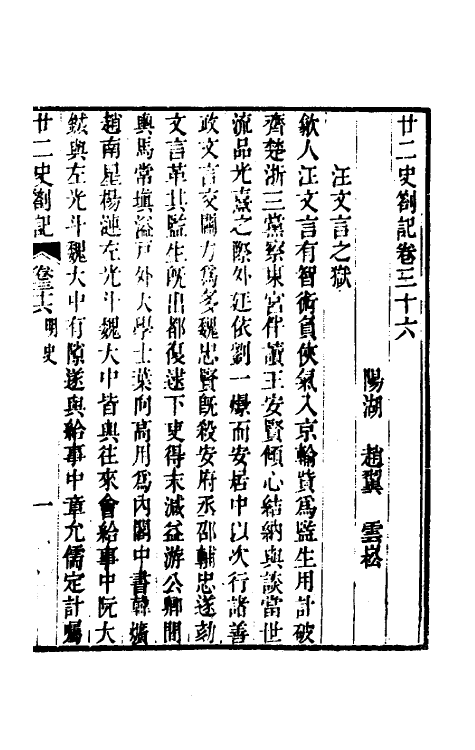 廿二史劄記卷三十六
陽湖 趙翼 雲崧
汪文言之獄
歙人汪文言有智術負俠氣入京輸貲爲監生用計破
齊楚浙三黨察東宮伴讀王安賢傾心結納與談當世
流品光熹之際外廷依劉一燝而安居中以次行諸善
政文言交關力爲多魏忠賢旣殺安府丞邵輔忠遂劾
文言革其監生旣出都復逮下吏得末減益游公卿間
輿馬常塡溢戸外大學士葉向高用爲內閣中書韓爌
趙南星楊漣左光斗魏大中皆與往來會給事中阮大
鋮與左光斗魏大中有隙遂與給事中章允儒定計囑
廿二史劄記
卷三十六 明史
一